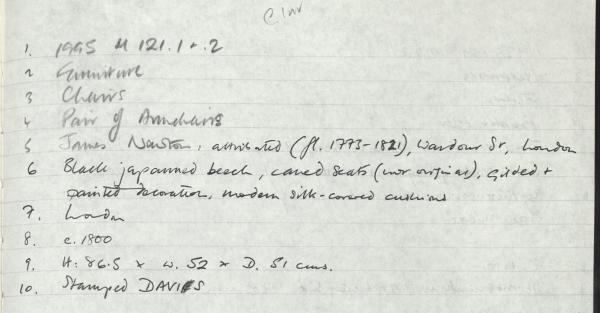 1. 1995 M 121.1 + .2
2 Furniture
3 Chairs
4 Pair of Armchairs
5 James Newton, attributed (fl. 1773-1821), Wardour St, London
6 Black japanned beech, caned seats (not original), gilded +
painted decoration, modern silk-covered cushions
7. London
8. c. 1800
9. H: 86.5 x W. 52 x D. 51 cms.
10. Stamped DAVIES